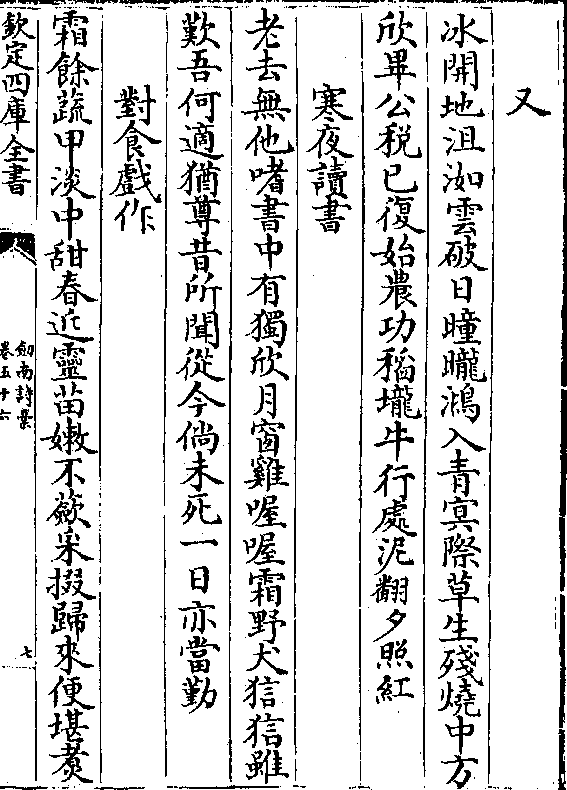 又
冰開地沮洳雲破日曈曨鴻入青冥際草生殘燒中方
欣畢公税已復始農功稻壠牛行處泥翻夕照紅
寒夜讀書
老去無他嗜書中有獨欣月窗雞喔喔霜野犬狺狺雖
歎吾何適猶尊昔所聞從今倘未死一日亦當勤
對食戲作
霜餘蔬甲淡中甜春近靈苗嫩不蘞采掇歸來便堪煑
欽定四庫全書
劒南詩槀
卷五十六
七